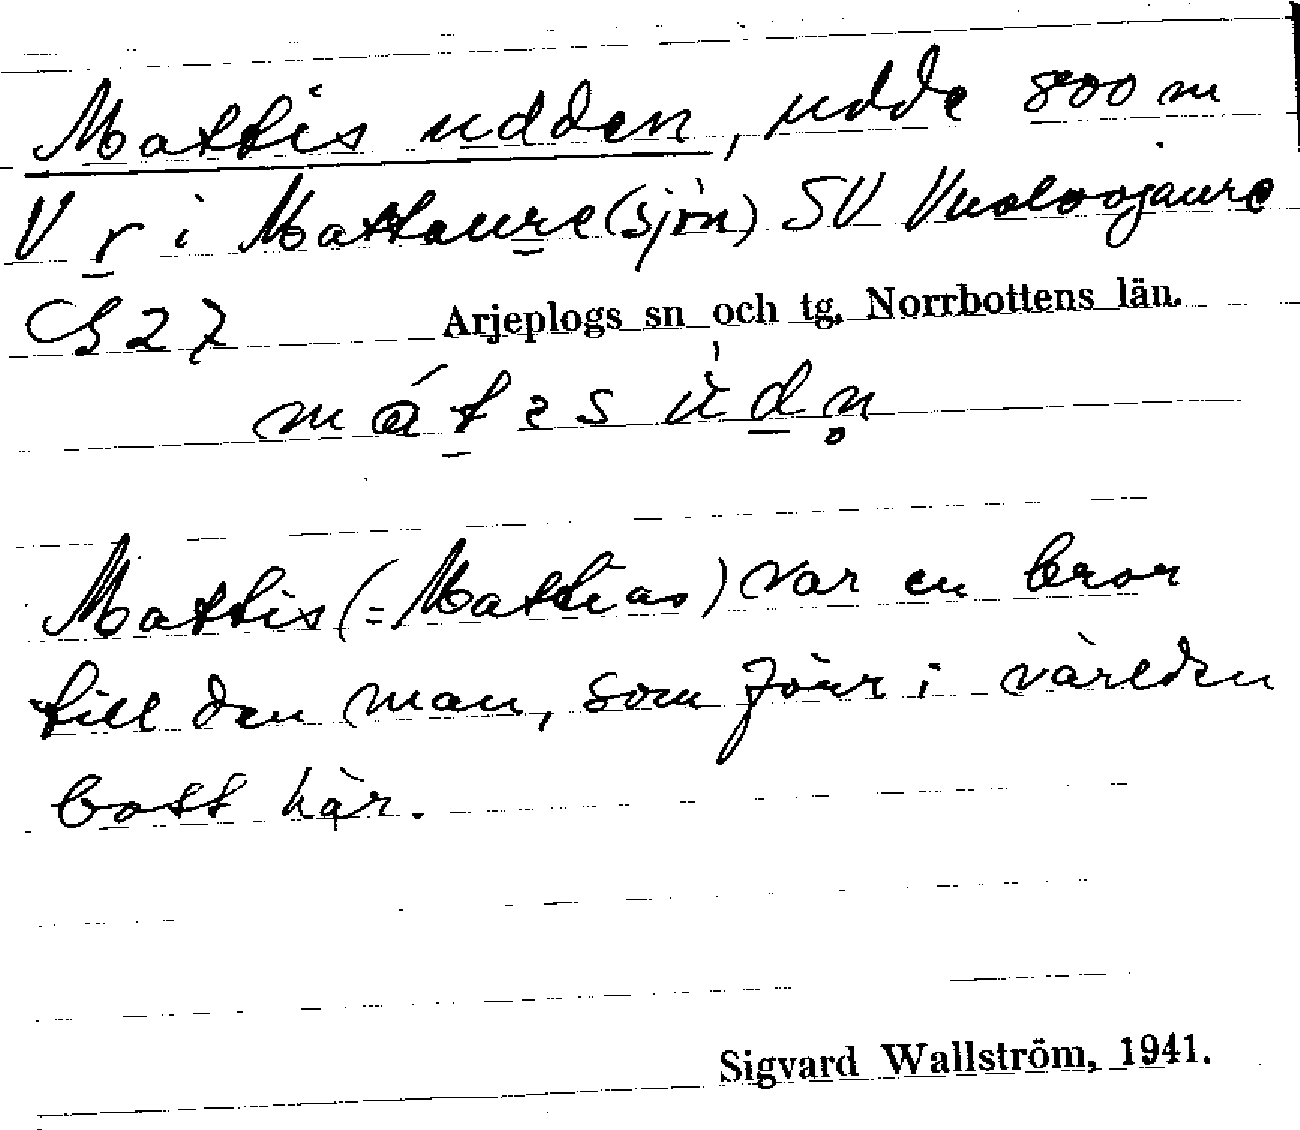 Mattis udden, udde 800 m
V r i Mattaure (sjön) SV Vuoloojaure
G 27
Arjeplogs sn och tg, Norrbottens län.
mátes ùdn̥
Mattis (= Mathias) var en bror
till den man, som förr i världen
bott här.
Sigvard Wallström, 1941.